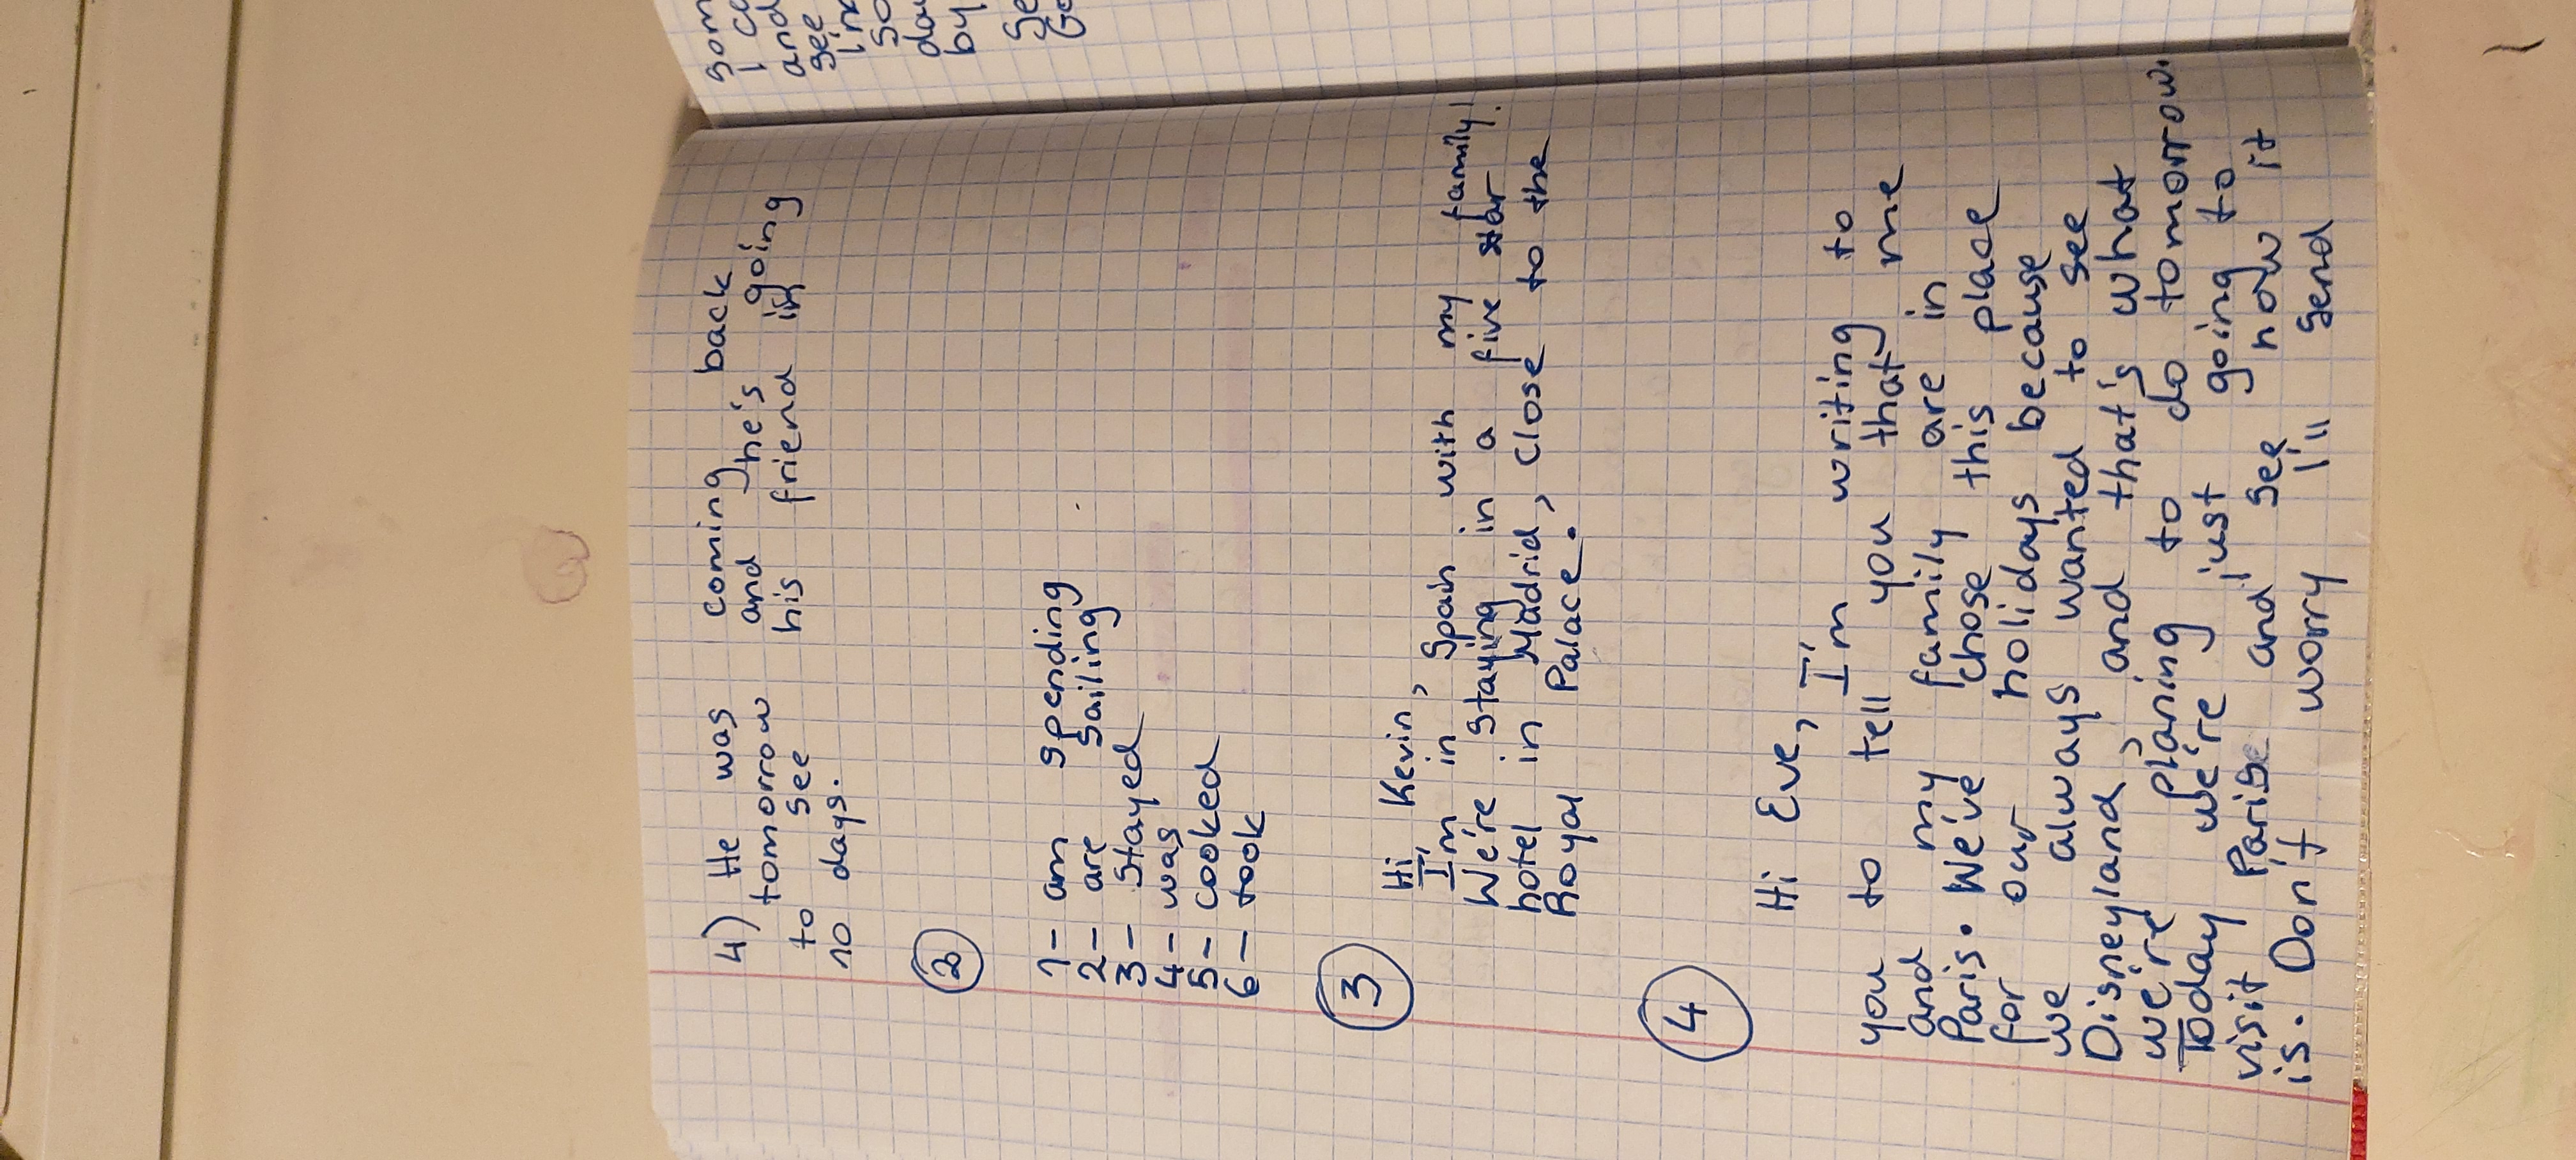 4) He was coming back
tomorrow and he's going
to see his friend in
10 days.
2
1- am spending
2- are sailing
3- stayed
4- was
5- cooked
6- took
3
Hi Kevin,
I'm in Spain with my family!
We're staying in a five star
hotel in Madrid, close to the
Royal Palace.
4
Hi Eve, I'm writing to
you to tell you that me
and my family are in
Paris. We've chose this place
for our holidays because
we always wanted to see
Disneyland, and that's what
we're planing to do tomorrow.
Today we're just going to
visit Paris and see how it
is. Don't worry I'll send
som
I ca
and
see
in
so
da
by
Se
Ge